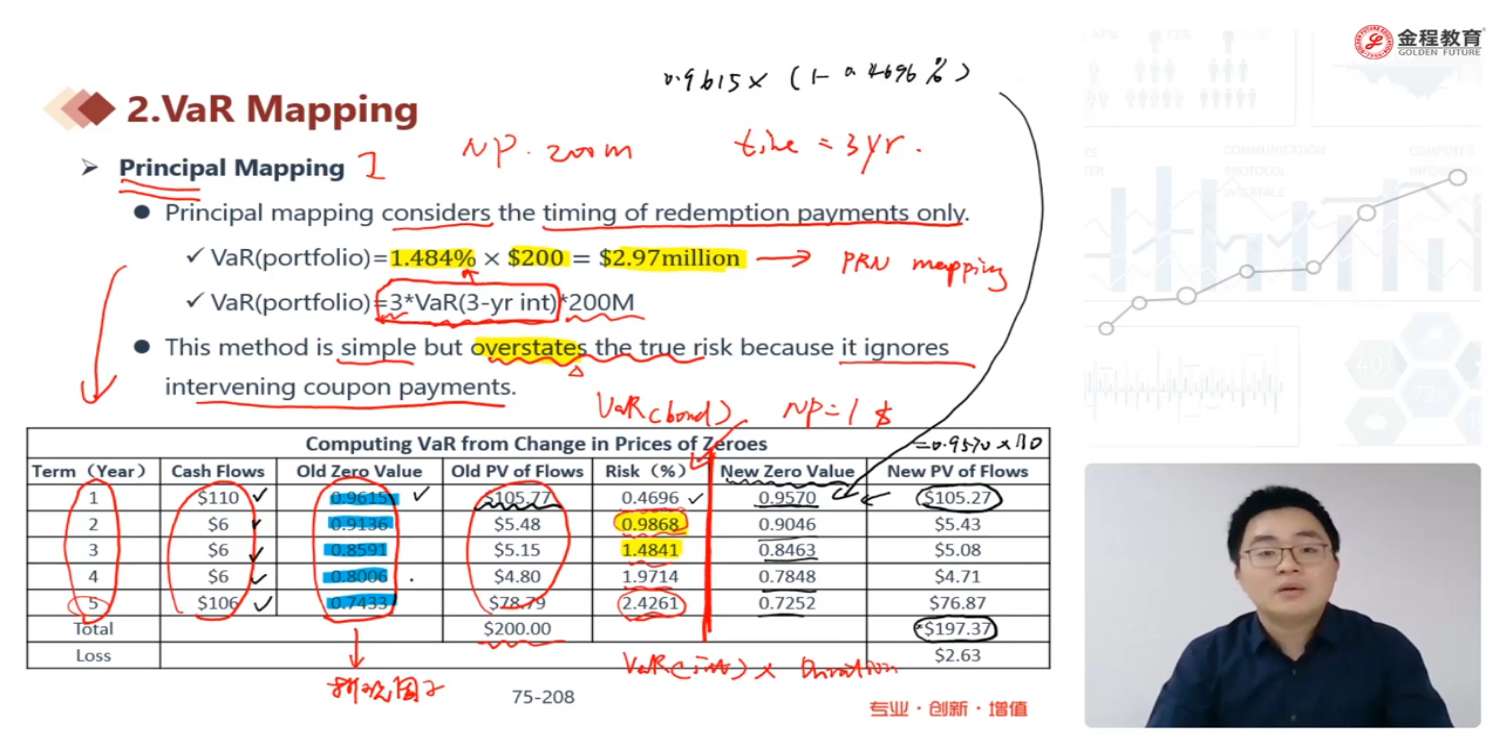 金程教育
GOLDEN FUTURE
0.9615 × (1-0.4696%)
2.VaR Mapping
NP. 200m
time = 3yr.
➢ Principal Mapping
● Principal mapping considers the timing of redemption payments only.
✓ VaR(portfolio)=1.484% × $200 = $2.97million → PRN mapping
✓ VaR(portfolio)=3*VaR(3-yr int)*200M
● This method is simple but overstates the true risk because it ignores
intervening coupon payments.
VaR(bond) NP=1 $
=0.9570×110
Computing VaR from Change in Prices of Zeroes
Term（Year） Cash Flows Old Zero Value Old PV of Flows Risk（%） New Zero Value New PV of Flows
1 $110 0.9615 $105.77 0.4696 0.9570 $105.27
2 $6 0.9136 $5.48 0.9868 0.9046 $5.43
3 $6 0.8591 $5.15 1.4841 0.8463 $5.08
4 $6 0.8006 $4.80 1.9714 0.7848 $4.71
5 $106 0.7433 $78.79 2.4261 0.7252 $76.87
Total $200.00 $197.37
Loss $2.63
VaR(int) × Duration
折现因子
75-208
专业·创新·增值